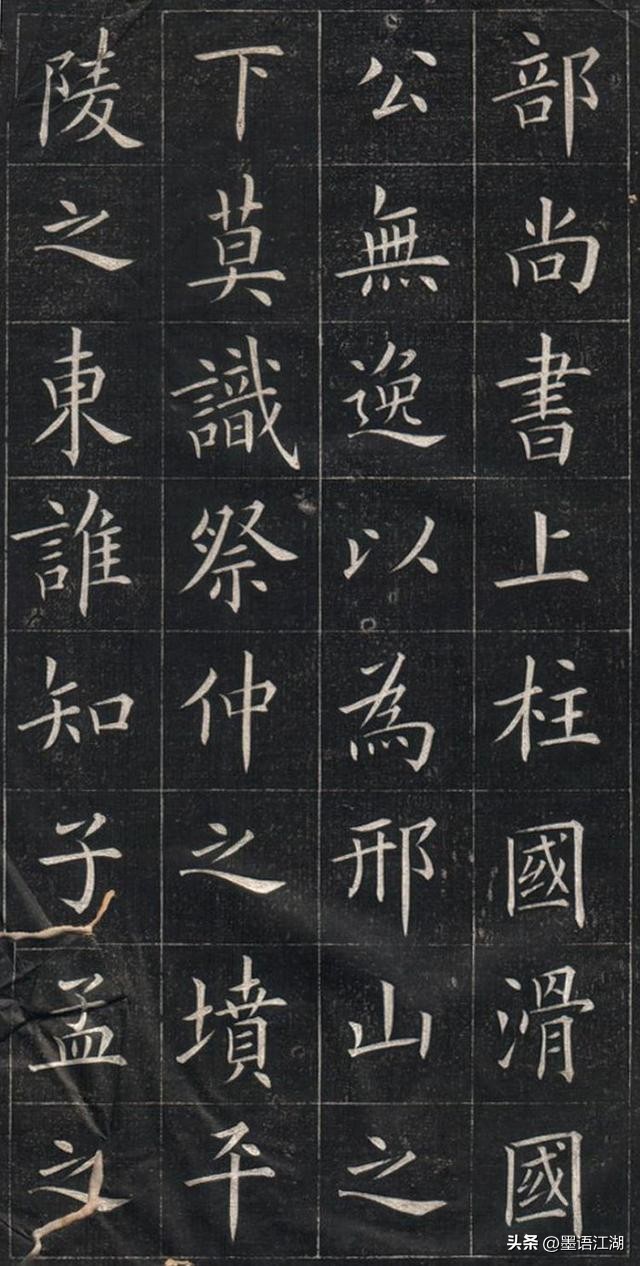 部尚書上柱國滑國
公無逸以為邢山之
下莫識祭仲之墳平
陵之東誰知子孟之
头条 @墨语江湖